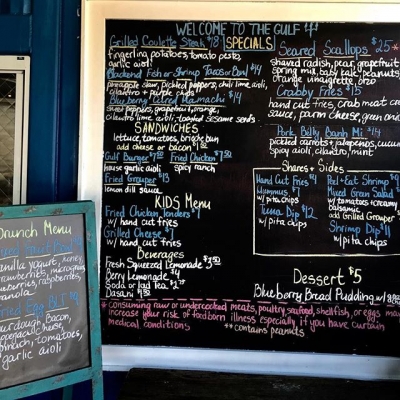 WELCOME TO THE GULF
Grilled Coulotte Steak $18
SPECIALS
fingerling potatoes, tomato, pesto,
garlic aioli
Blackened Fish or Shrimp Tacos or Bowl $14
pineapple slaw, pickled peppers, chili lime aioli,
cilantro + chips
Blueberry Cured Hamachi $14
sweet peppers, grapefruit, orange,
cilantro lime aioli, toasted sesame seeds
SANDWICHES
lettuce, tomatoes, bun
add cheese or bacon
Gulf Burger
Fried Chicken
house garlic aioli
spicy ranch
Fried Grouper
lemon dill sauce
KIDS Menu
Fried Chicken Tenders
w/ hand cut fries
Grilled Cheese
w/ hand cut fries
Beverages
Fresh Squeezed Lemonade
Berry Lemonade $4
Soda or Iced Tea
Dasani
Seared Scallops $25*
shaved radish, pear, grapefruit
spring mix, baby kale, peanuts,
orange vinaigrette, orzo
Crabby Fries $15
hand cut fries, crab meat
sauce, parm cheese, green
Pork Belly Banh Mi $14
pickled carrots + jalapenos,
spicy aioli, cilantro, mint
Shares + Sides
Hand Cut Fries
Hummus
w/ pita chips
Tuna Dip $12
w/ pita chips
Peel + Eat Shrimp
Mixed Green Salad
w/ tomatoes + creamy
balsamic
add Grilled Grouper
Shrimp Dip $11
w/ pita chips
Dessert $5
Blueberry Bread Pudding w/
* consuming raw or undercooked meats, poultry, seafood, shellfish, or eggs may
increase your risk of foodborn illness especially if you have curtain
medical conditions
**contains peanuts
Brunch Menu
Bowl
vanilla yogurt, honey,
strawberries,
blueberries, raspberries,
granola
Fried Egg BLT
sourdough, Bacon,
cheese,
spinach, tomatoes,
garlic aioli